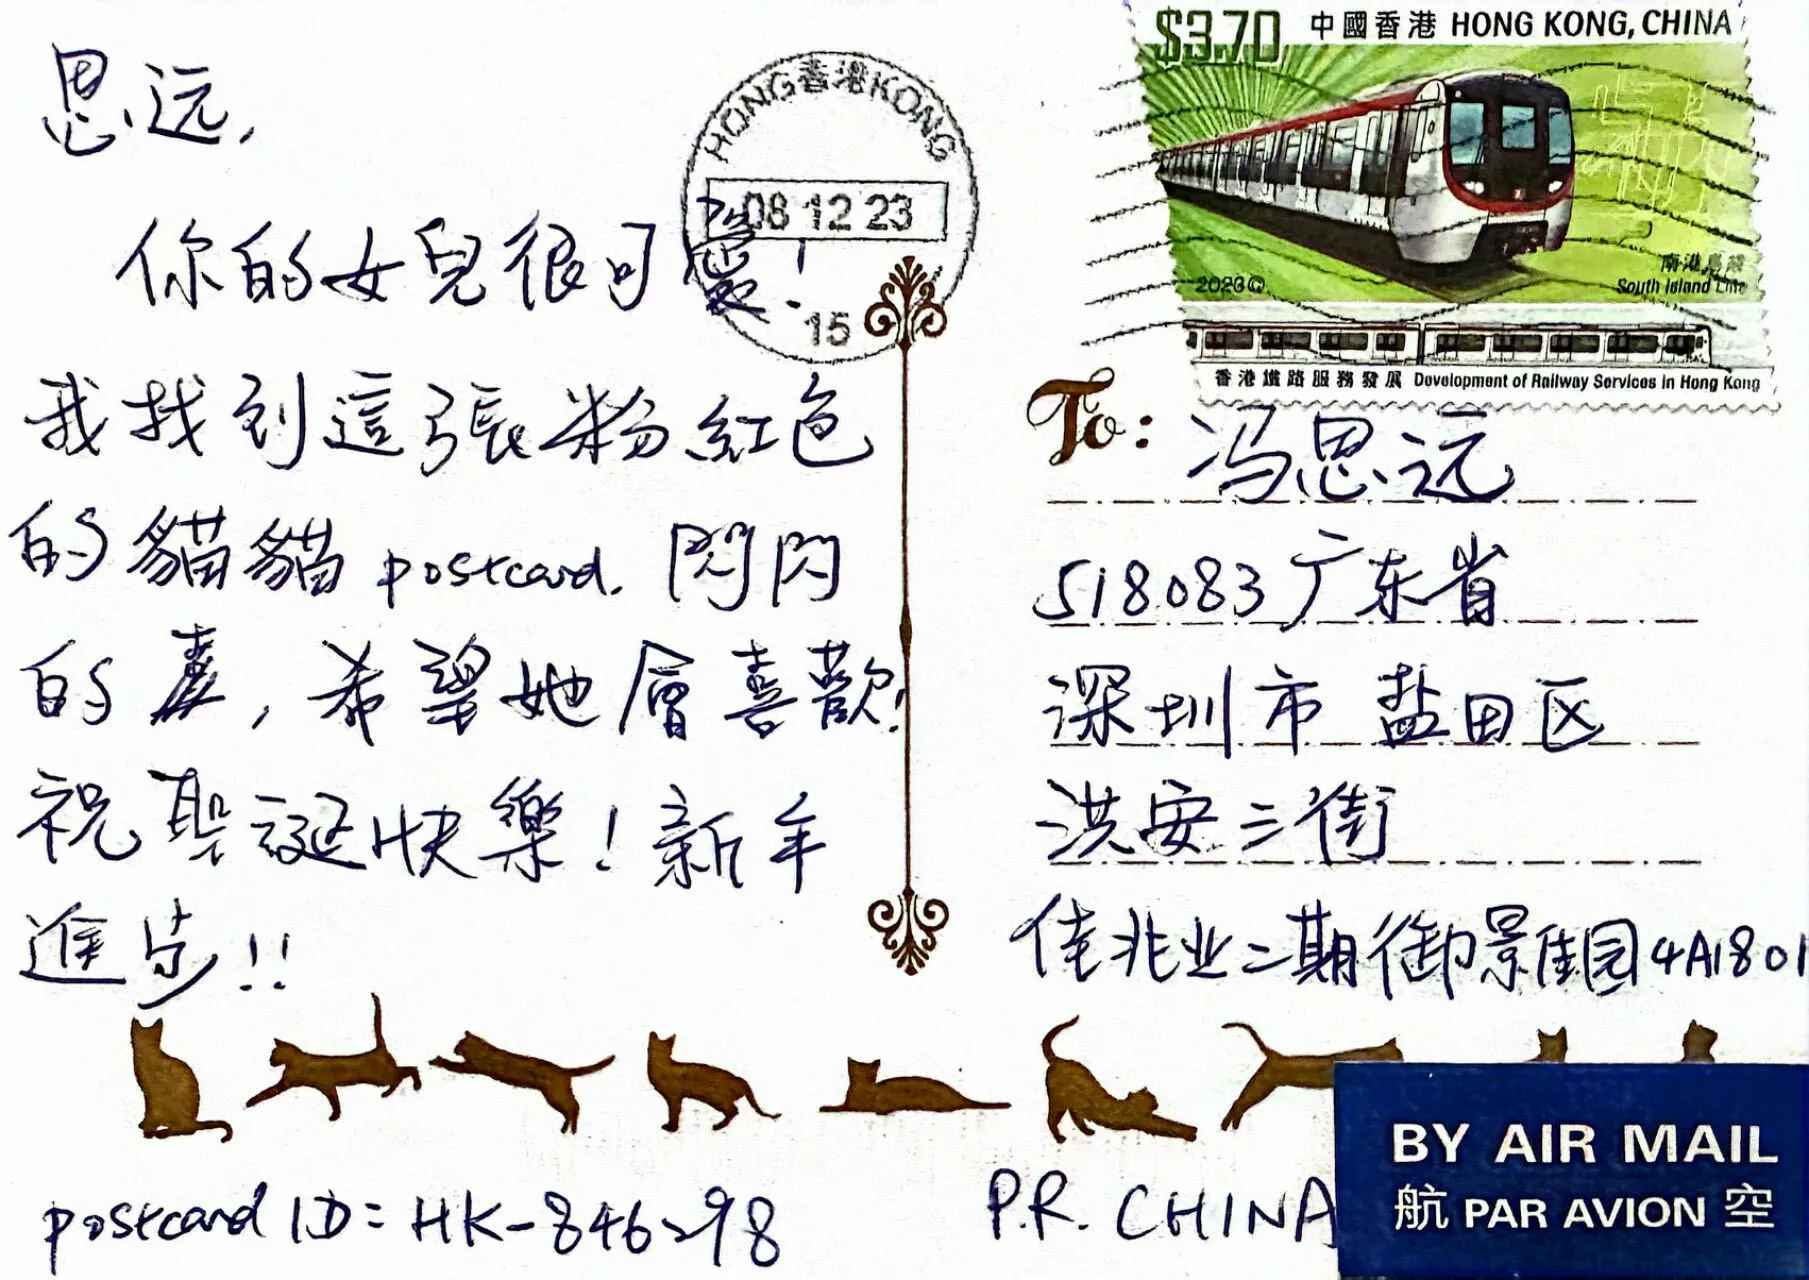 思远,
你的女兒很可愛!
我找到這張粉紅色
的貓貓 postcard. 閃閃
的, 希望她會喜歡!
祝聖誕快樂! 新年
進步!!
postcard ID: HK-846298
HONG 香港 KONG
08 12 23
15
$3.70 中國香港 HONG KONG, CHINA
2023
南港島綫
South Island Line
香港鐵路服務發展 Development of Railway Services in Hong Kong
To: 冯思远
518083 广东省
深圳市 盐田区
洪安三街
佳兆业二期御景佳园4A1801
P.R. CHINA
BY AIR MAIL
航 PAR AVION 空